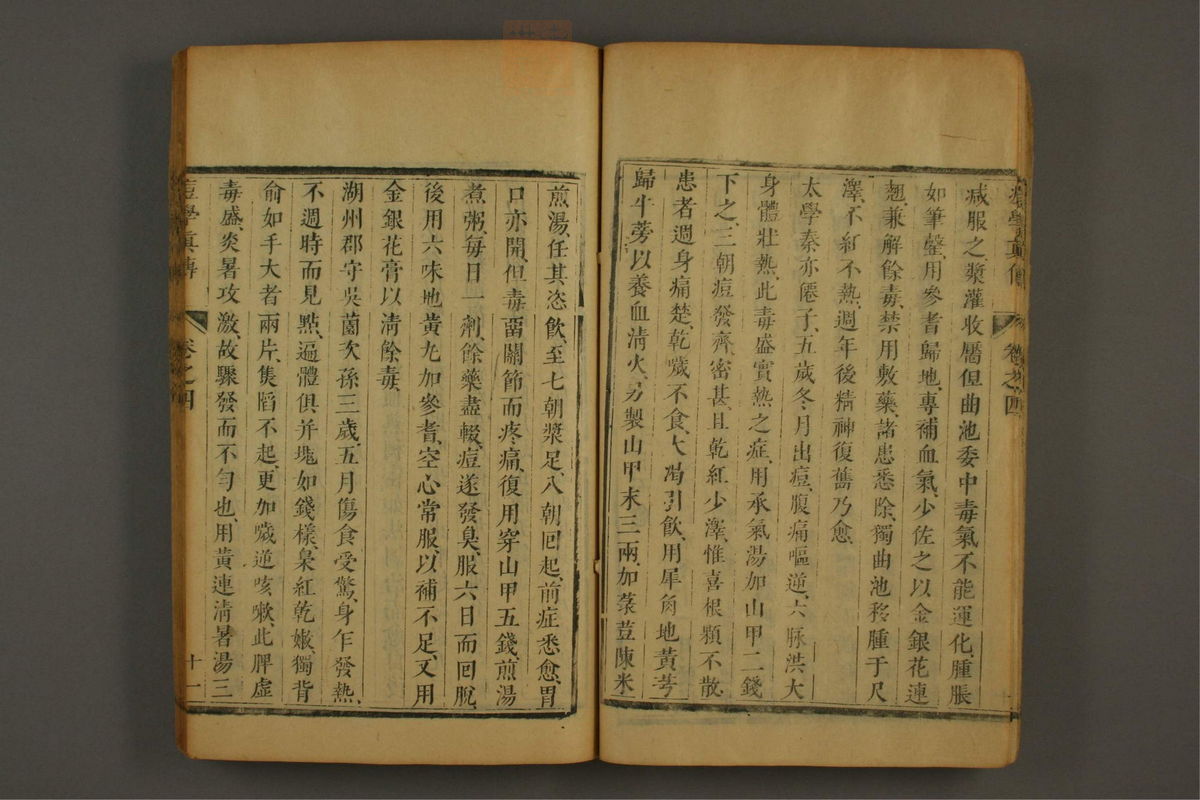 痘學眞傳 卷之四
減服之、漿灌收靨、但曲池委中毒氣不能運化、腫脹
如筆罄、用參耆歸地、專補血氣、少佐之以金銀花連
翹、兼解餘毒、禁用敷藥、諸患悉除、獨曲池移腫于尺
澤、不紅不熱、週年後精神復舊乃愈
太學秦亦僊子、五歲冬月出痘、腹痛嘔逆、六脉洪大
身體壯熱、此毒盛實熱之症、用承氣湯加山甲二錢
下之、三朝痘發齊、密甚、且乾紅少澤、惟喜根顆不散
患者週身痛楚、乾噦不食、大渴引飲、用犀角地黃芩
歸牛蒡以養血淸火、另製山甲末三兩、加菉荳陳米
煎湯、任其恣飲、至七朝漿足、八朝回起、前症悉愈、胃
口亦開、但毒畱關節而疼痛、復用穿山甲五錢、煎湯
煮粥、每日一劑、餘藥盡輟、痘遂發臭、服六日而回脫
後用六味地黃丸加參耆、空心常服、以補不足、又用
金銀花膏以淸餘毒
湖州郡守吳薗次孫三歲、五月傷食受驚、身乍發熱、
不週時而見點、遍體俱幷塊如錢樣、梟紅乾嫩、獨背
俞如手大者兩片、隻䧟不起、更加噦逆咳嗽、此脾虛
毒盛、炎暑攻激、故驟發而不勻也、用黃連淸暑湯三
痘學眞傳 卷之四 十一